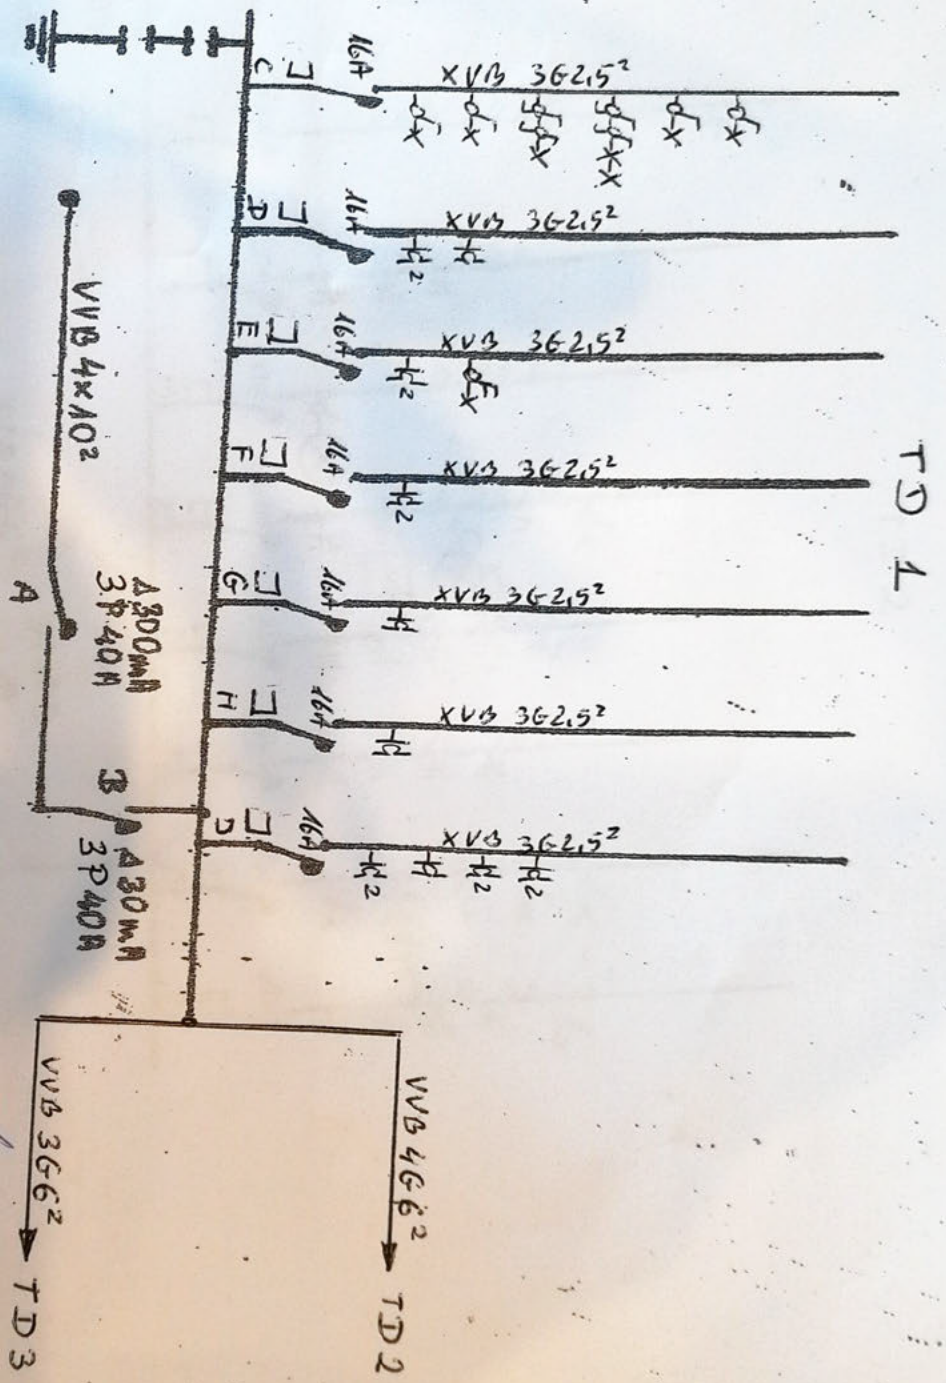 TD 1
C 16A XVB 3G2,5²
D 16A XVB 3G2,5²
2
E 16A XVB 3G2,5²
2
F 16A XVB 3G2,5²
2
G 16A XVB 3G2,5²
H 16A XVB 3G2,5²
16A XVB 3G2,5²
2 2 2
VVB 4x10²
A
Δ300mA
3P 40A
B
Δ30mA
3P40A
VVB 4G6²
TD2
VVB 3G6²
TD3